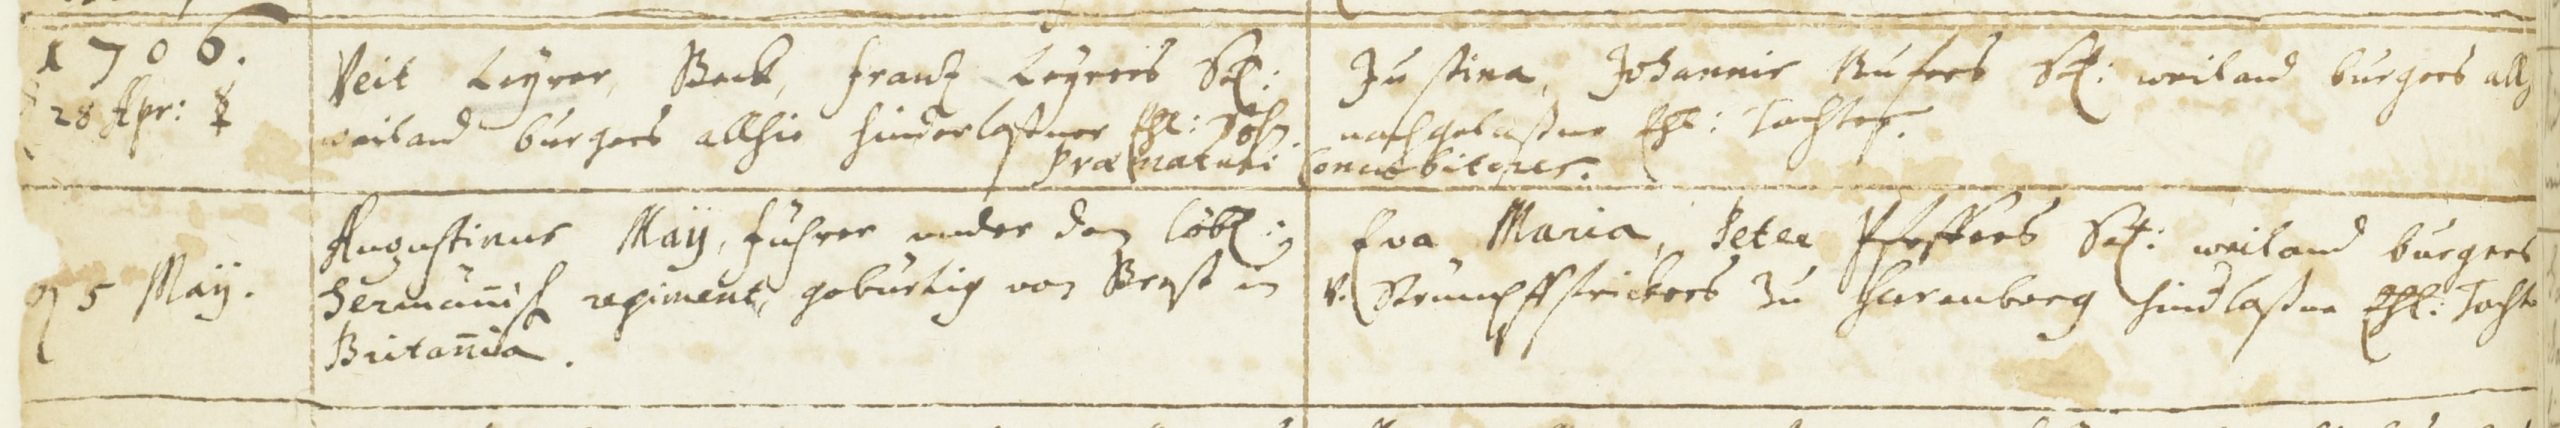 1706.
28 Apr: ☿
Veit Leyrer, Beck, Frantz Leyrers Sel:
weiland burgers allhie hinderlaßner Ehl: Sohn.
Justina, Johannis Rufers Sel: weiland burgers allh
nachgelaßne Ehl: Tochter.
Præmaturi Concubitores.
5 Maÿ.
Augustinus Maÿ, führer under dem löbl:
Hermänisch regiment, gebürtig von Brest in
Britannia.
Eva Maria, Peter Pfeffers Sel: weiland burgers
v. Strumpffstrickers zu Herenberg hindlaßne Ehl: Tocht